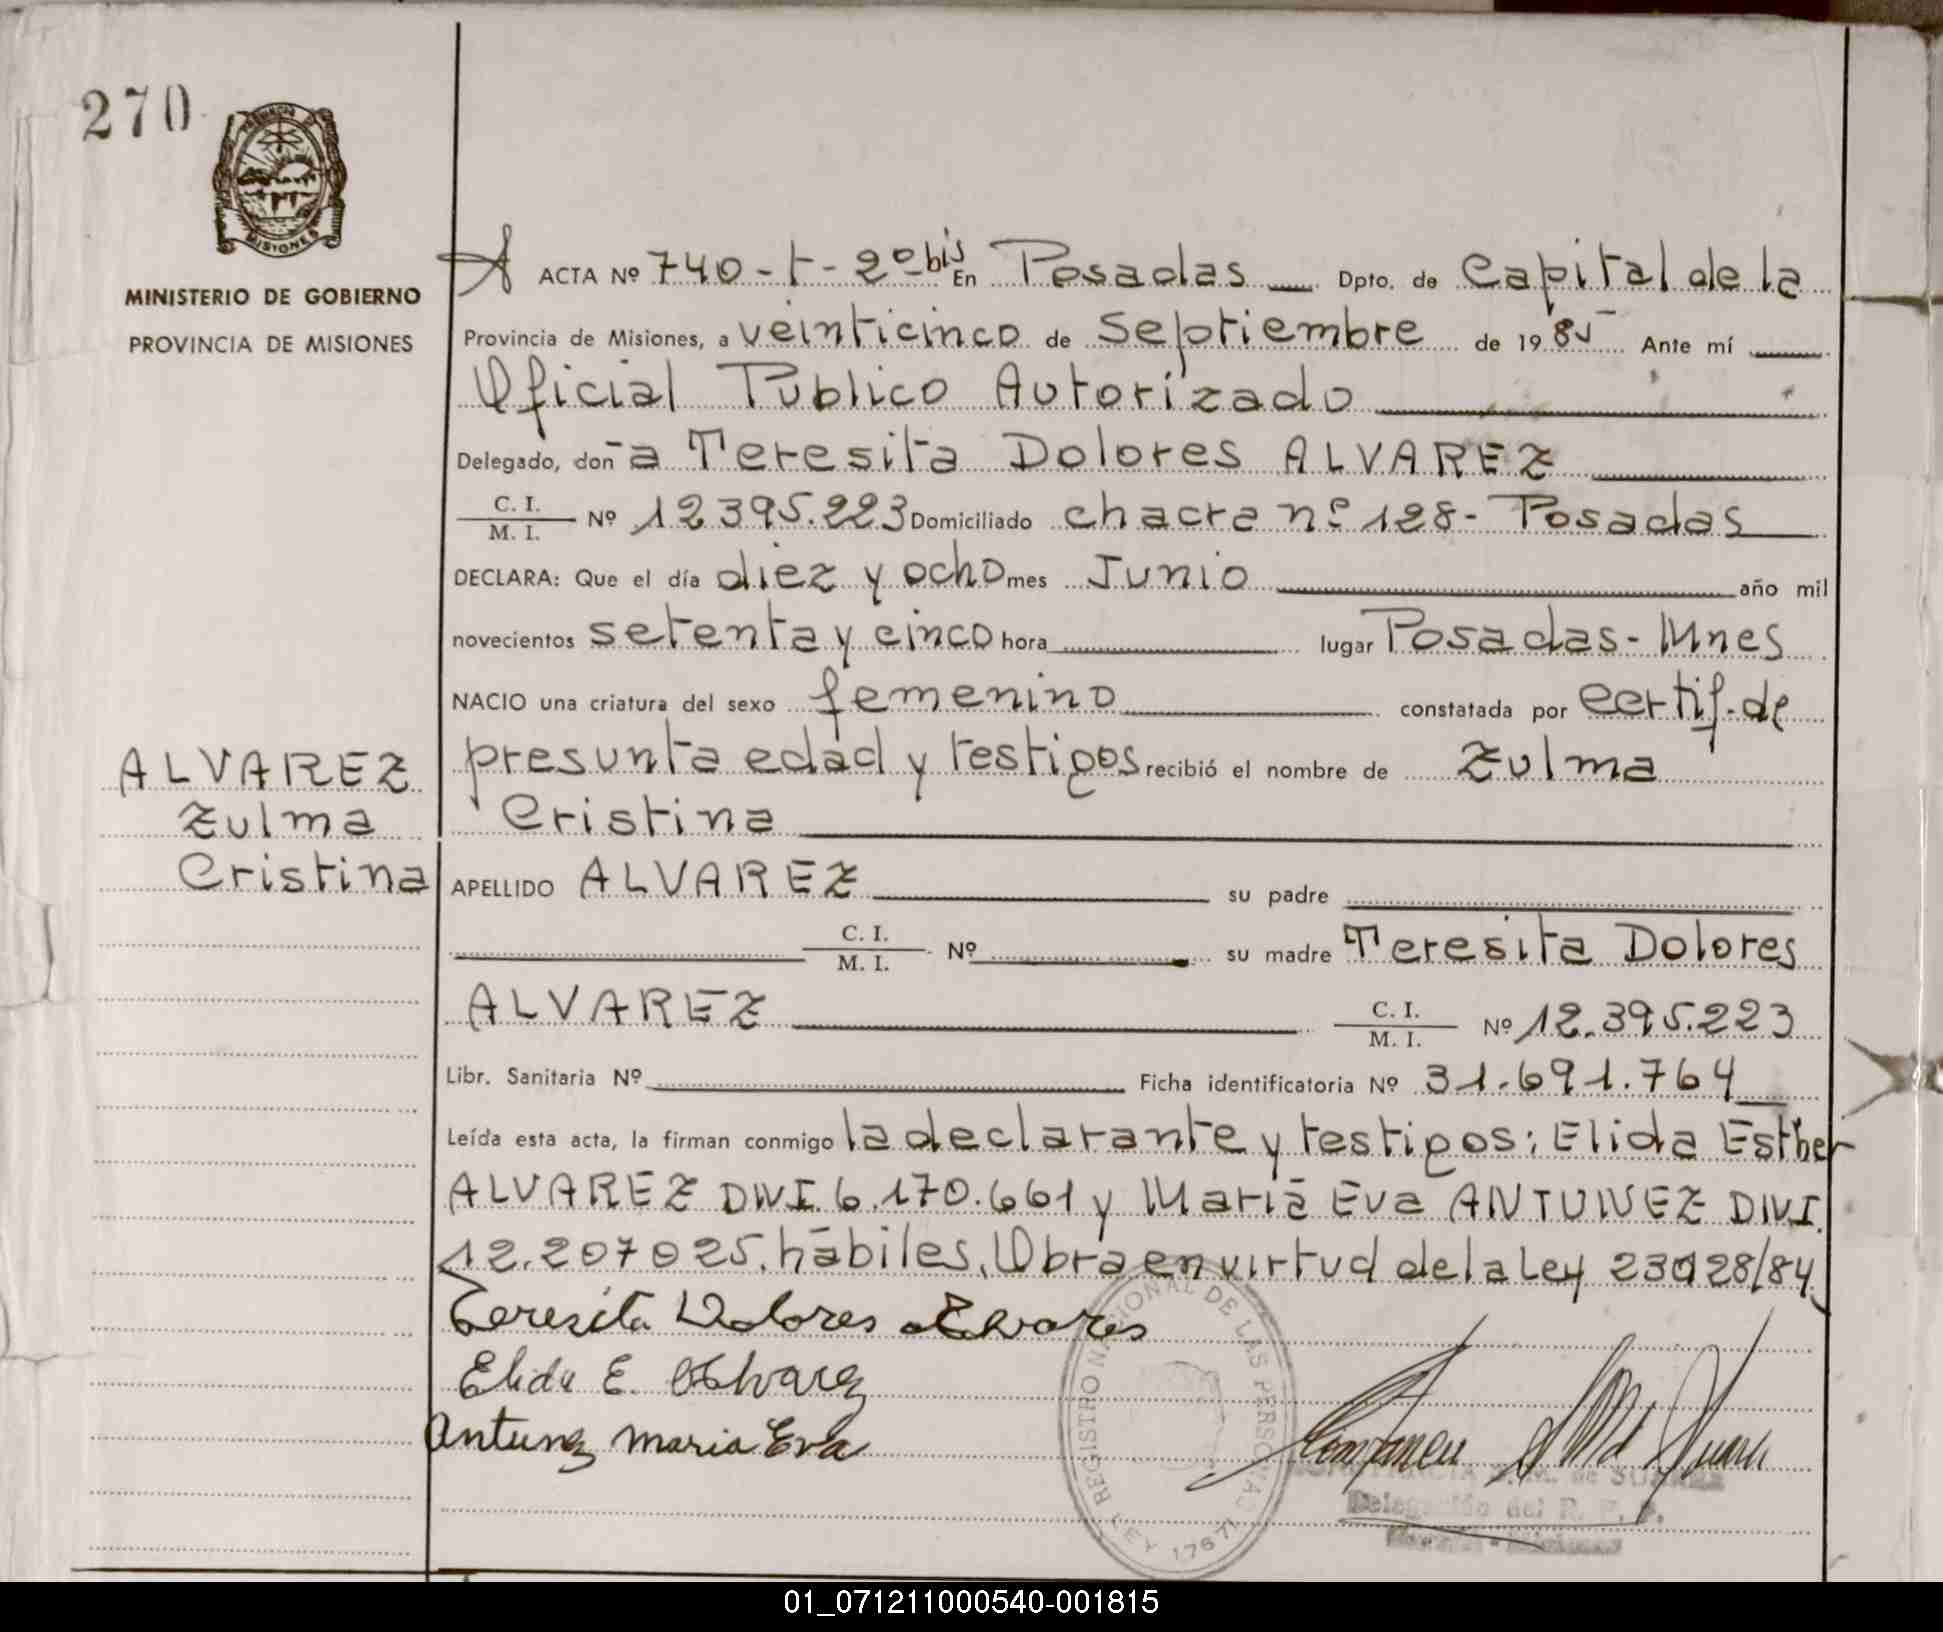 270
PROVINCIA DE
MISIONES
MINISTERIO DE GOBIERNO
PROVINCIA DE MISIONES
ALVAREZ
Zulma
Cristina
A ACTA Nº 740-t-2º bis En Posadas Dpto. de Capital de la
Provincia de Misiones, a veinticinco de Septiembre de 1985 Ante mí
Oficial Público Autorizado
Delegado, doña Teresita Dolores ALVAREZ
C. I. / M. I. Nº 12395.223 Domiciliado chacra nº 128 - Posadas
DECLARA: Que el día diez y ocho mes Junio año mil
novecientos setenta y cinco hora lugar Posadas - Mnes
NACIO una criatura del sexo femenino constatada por certif. de
presunta edad y testigos recibió el nombre de Zulma
Cristina
APELLIDO ALVAREZ su padre
C. I. / M. I. Nº su madre Teresita Dolores
ALVAREZ C. I. / M. I. Nº 12.395.223
Libr. Sanitaria Nº Ficha identificatoria Nº 31.691.764
Leída esta acta, la firman conmigo la declarante y testigos: Elida Esther
ALVAREZ DNI. 6.170.661 y María Eva ANTUNEZ DNI.
12.207025. hábiles. Obra en virtud de la Ley 23028/84
Teresita Dolores Alvares
Elida E. Alvarez
Antunez maria Eva
REGISTRO NACIONAL DE LAS PERSONAS
LEY 17671
Delegación del R. P.
01_071211000540-001815